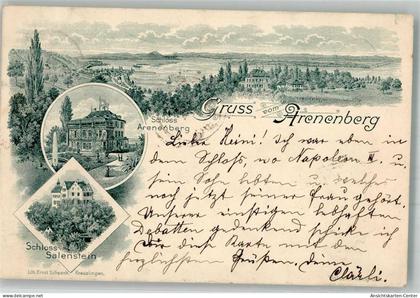 Gruss vom Arenenberg
Schloss
Arenenberg
Schloss
Salenstein
Lith. Ernst Schenck, Kreuzlingen.
Liebe Heini! Ich war eben in
dem Schloss, wo Napoleon III u.
sein Sohn lebten u. welche
noch jetzt seiner Frau gehört.
Unserer einstigen lebhaften
Debatten gedenkend schicke ich
Dir diese Karte mit den
herzlichsten Grüßen, deine
Clärli.
www.ansichtskarten-center.de
Ansichtskarten Center